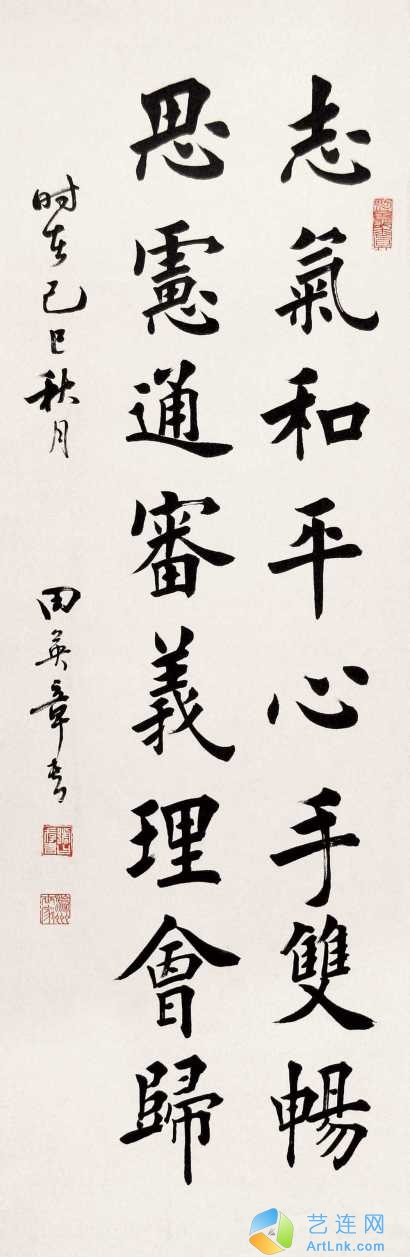 志氣和平心手雙暢
思慮通審義理會歸
时在己巳秋月
田英章书
艺连网
ArtLnk.com